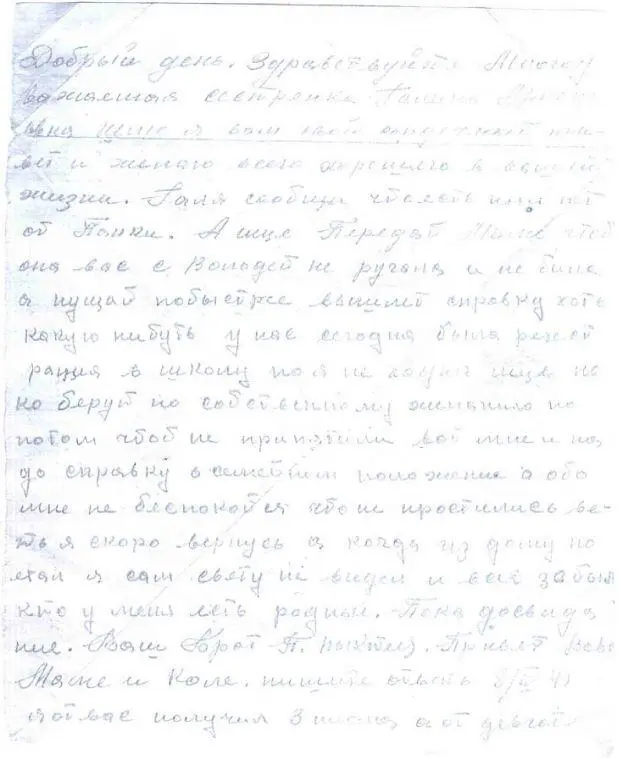 Добрый день. Здравствуйте Многоу
важаемая сестренка Галина
вна шлю я вам свой сердечный при-
вет и желаю всего хорошего в вашей
жизни. Галя сообщи что есть или нет
от Паньки. А еще Передай Маме чтоб
она вас с Володей не ругала и не била
а пущай побыстрее вышлет справку хоть
какую нибуть у нас сегодня была регест
рация в школу но я не ходил еще не
но беруть по собственному желанию но
потом чтоб не припятили вот мне и на
до справку о семейном положение а обо
мне не беспокойтся что не простились ве-
ть я скоро вернусь а когда из дому по
ехал я сам свету не видел и всё забыл
кто у меня есть родный. Пока досвида
ние. Ваш Брат П. Привет Вове
Мане и Коле. пишите ответь
я от вас получил 3 писма а от девчат